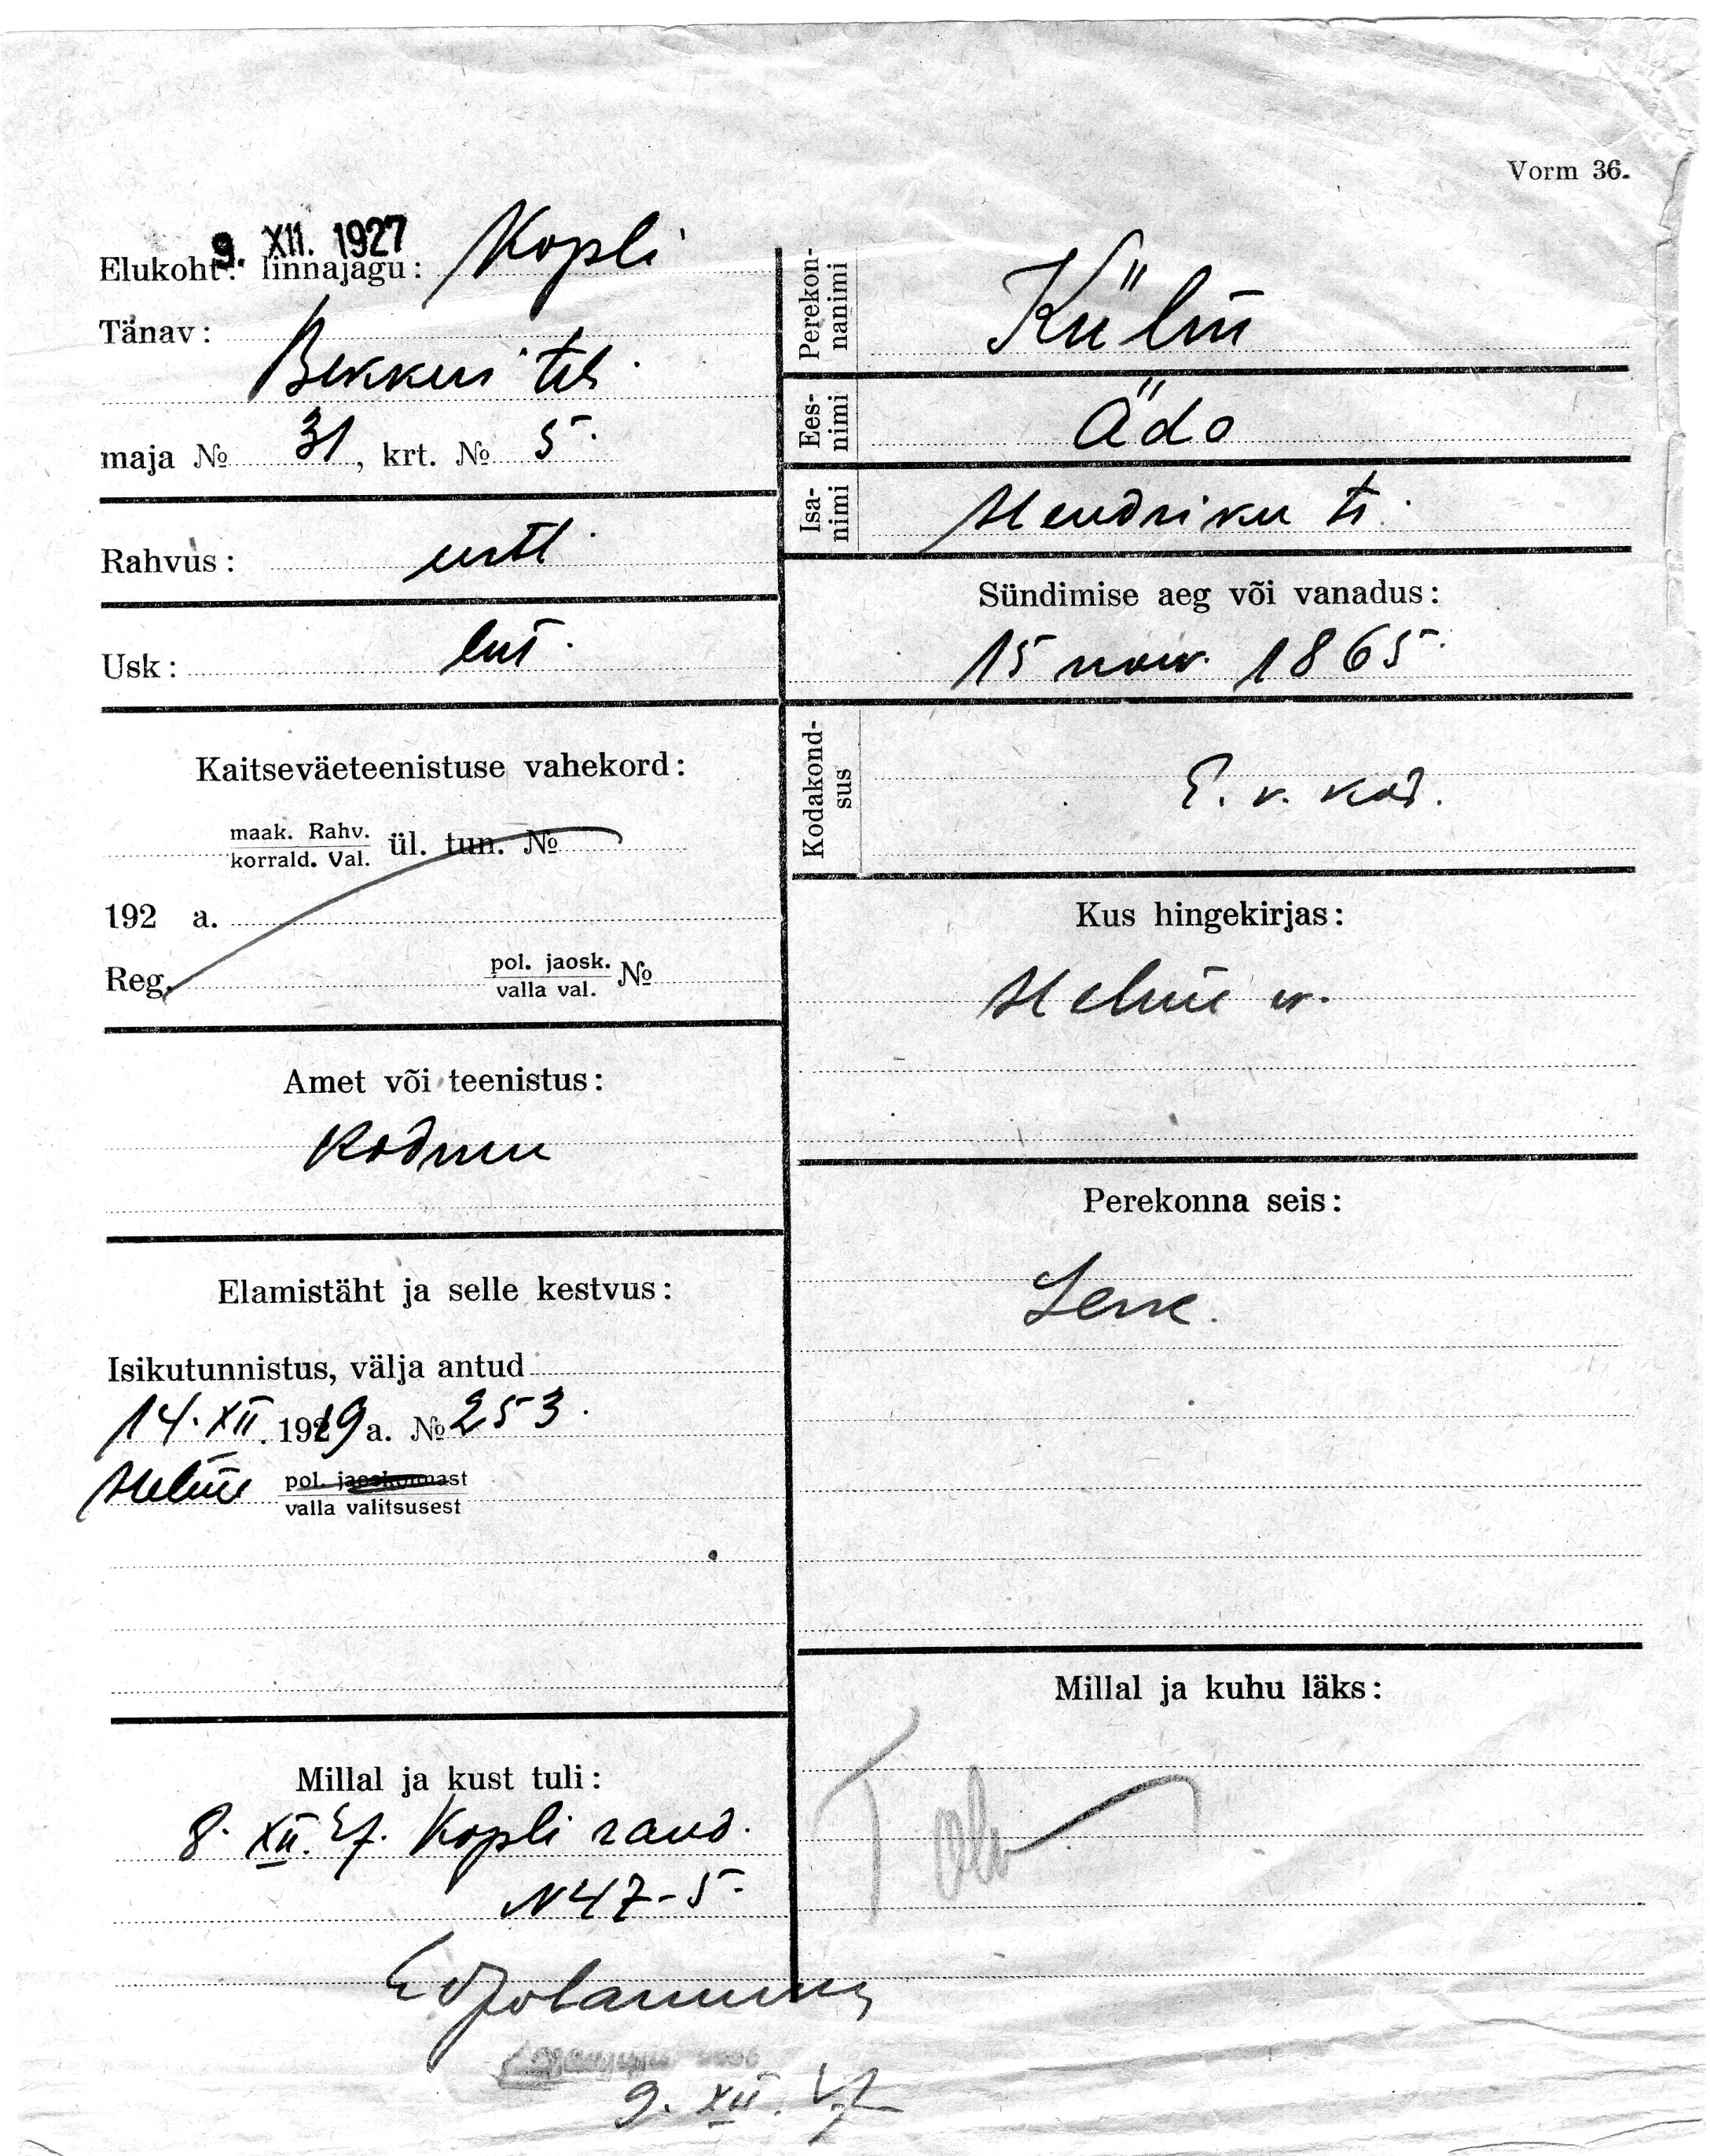 Vorm 36.
9. XII. 1927
Elukoht: linnajagu: Kopli
Tänav:
Bekkeri teh.
maja № 31, krt. № 5.
Rahvus: eestl.
Usk: lut.
Kaitseväeteenistuse vahekord:
maak. Rahv.
korrald. Val. ül. tun. №
192 a.
Reg. pol. jaosk.
valla val. №
Amet või teenistus:
Kodune
Elamistäht ja selle kestvus:
Isikutunnistus, välja antud
14. XII. 1919 a. № 253.
Helme pol. jaoskonnast
valla valitsusest
Millal ja kust tuli:
8. XII. 27. Kopli rand.
N 47-5.
9. XII. 27
Perekon-
nanimi Külm
Ees-
nimi Ädo
Isa-
nimi Hendriku t.
Sündimise aeg või vanadus:
15 now. 1865.
Kodakond-
sus E. v. kod.
Kus hingekirjas:
Helme v.
Perekonna seis:
Lesk.
Millal ja kuhu läks: